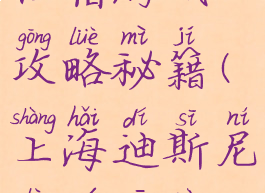 gōng lüè mì jí
攻略秘籍(
shàng hǎi dí sī ní
上海迪斯尼